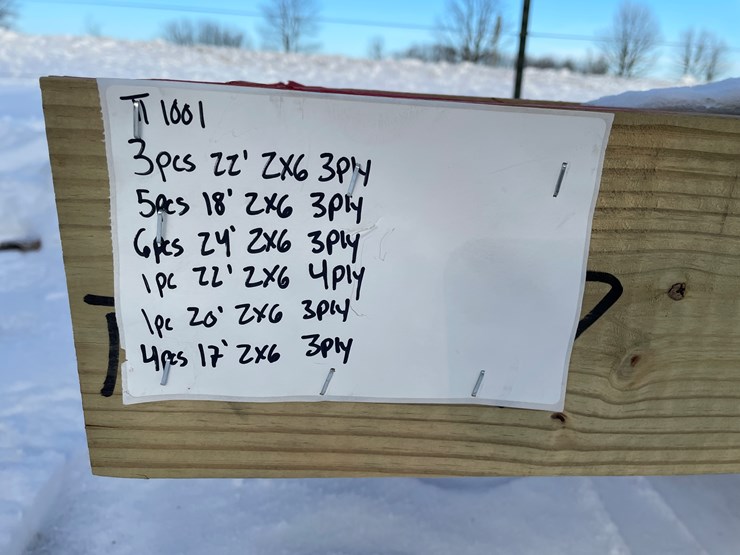 TT 1001
3pcs 22' 2x6 3ply
5pcs 18' 2x6 3ply
6pcs 24' 2x6 3ply
1pc 22' 2x6 4ply
1pc 20' 2x6 3ply
4pcs 17' 2x6 3ply